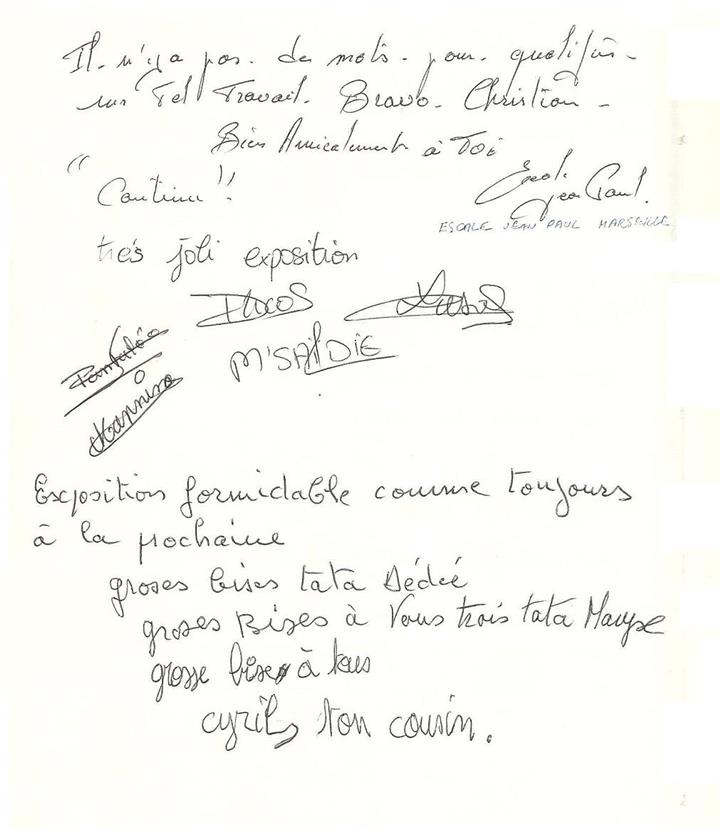 Il. n'y a pas. des mots. pour. qualifier.
un Tel Travail. Bravo. Christian -
Bien Amicalement à Toi
"Continue"!!
Jean Paul.
ESCALE JEAN PAUL MARSEILLE
trés joli exposition
M'SAÏDIE
Exposition formidable comme toujours
à la prochaine
groses bises tata Dédée
groses Bises à Vous trois tata Maryse
grosse bise à tous
cyril, ton cousin.